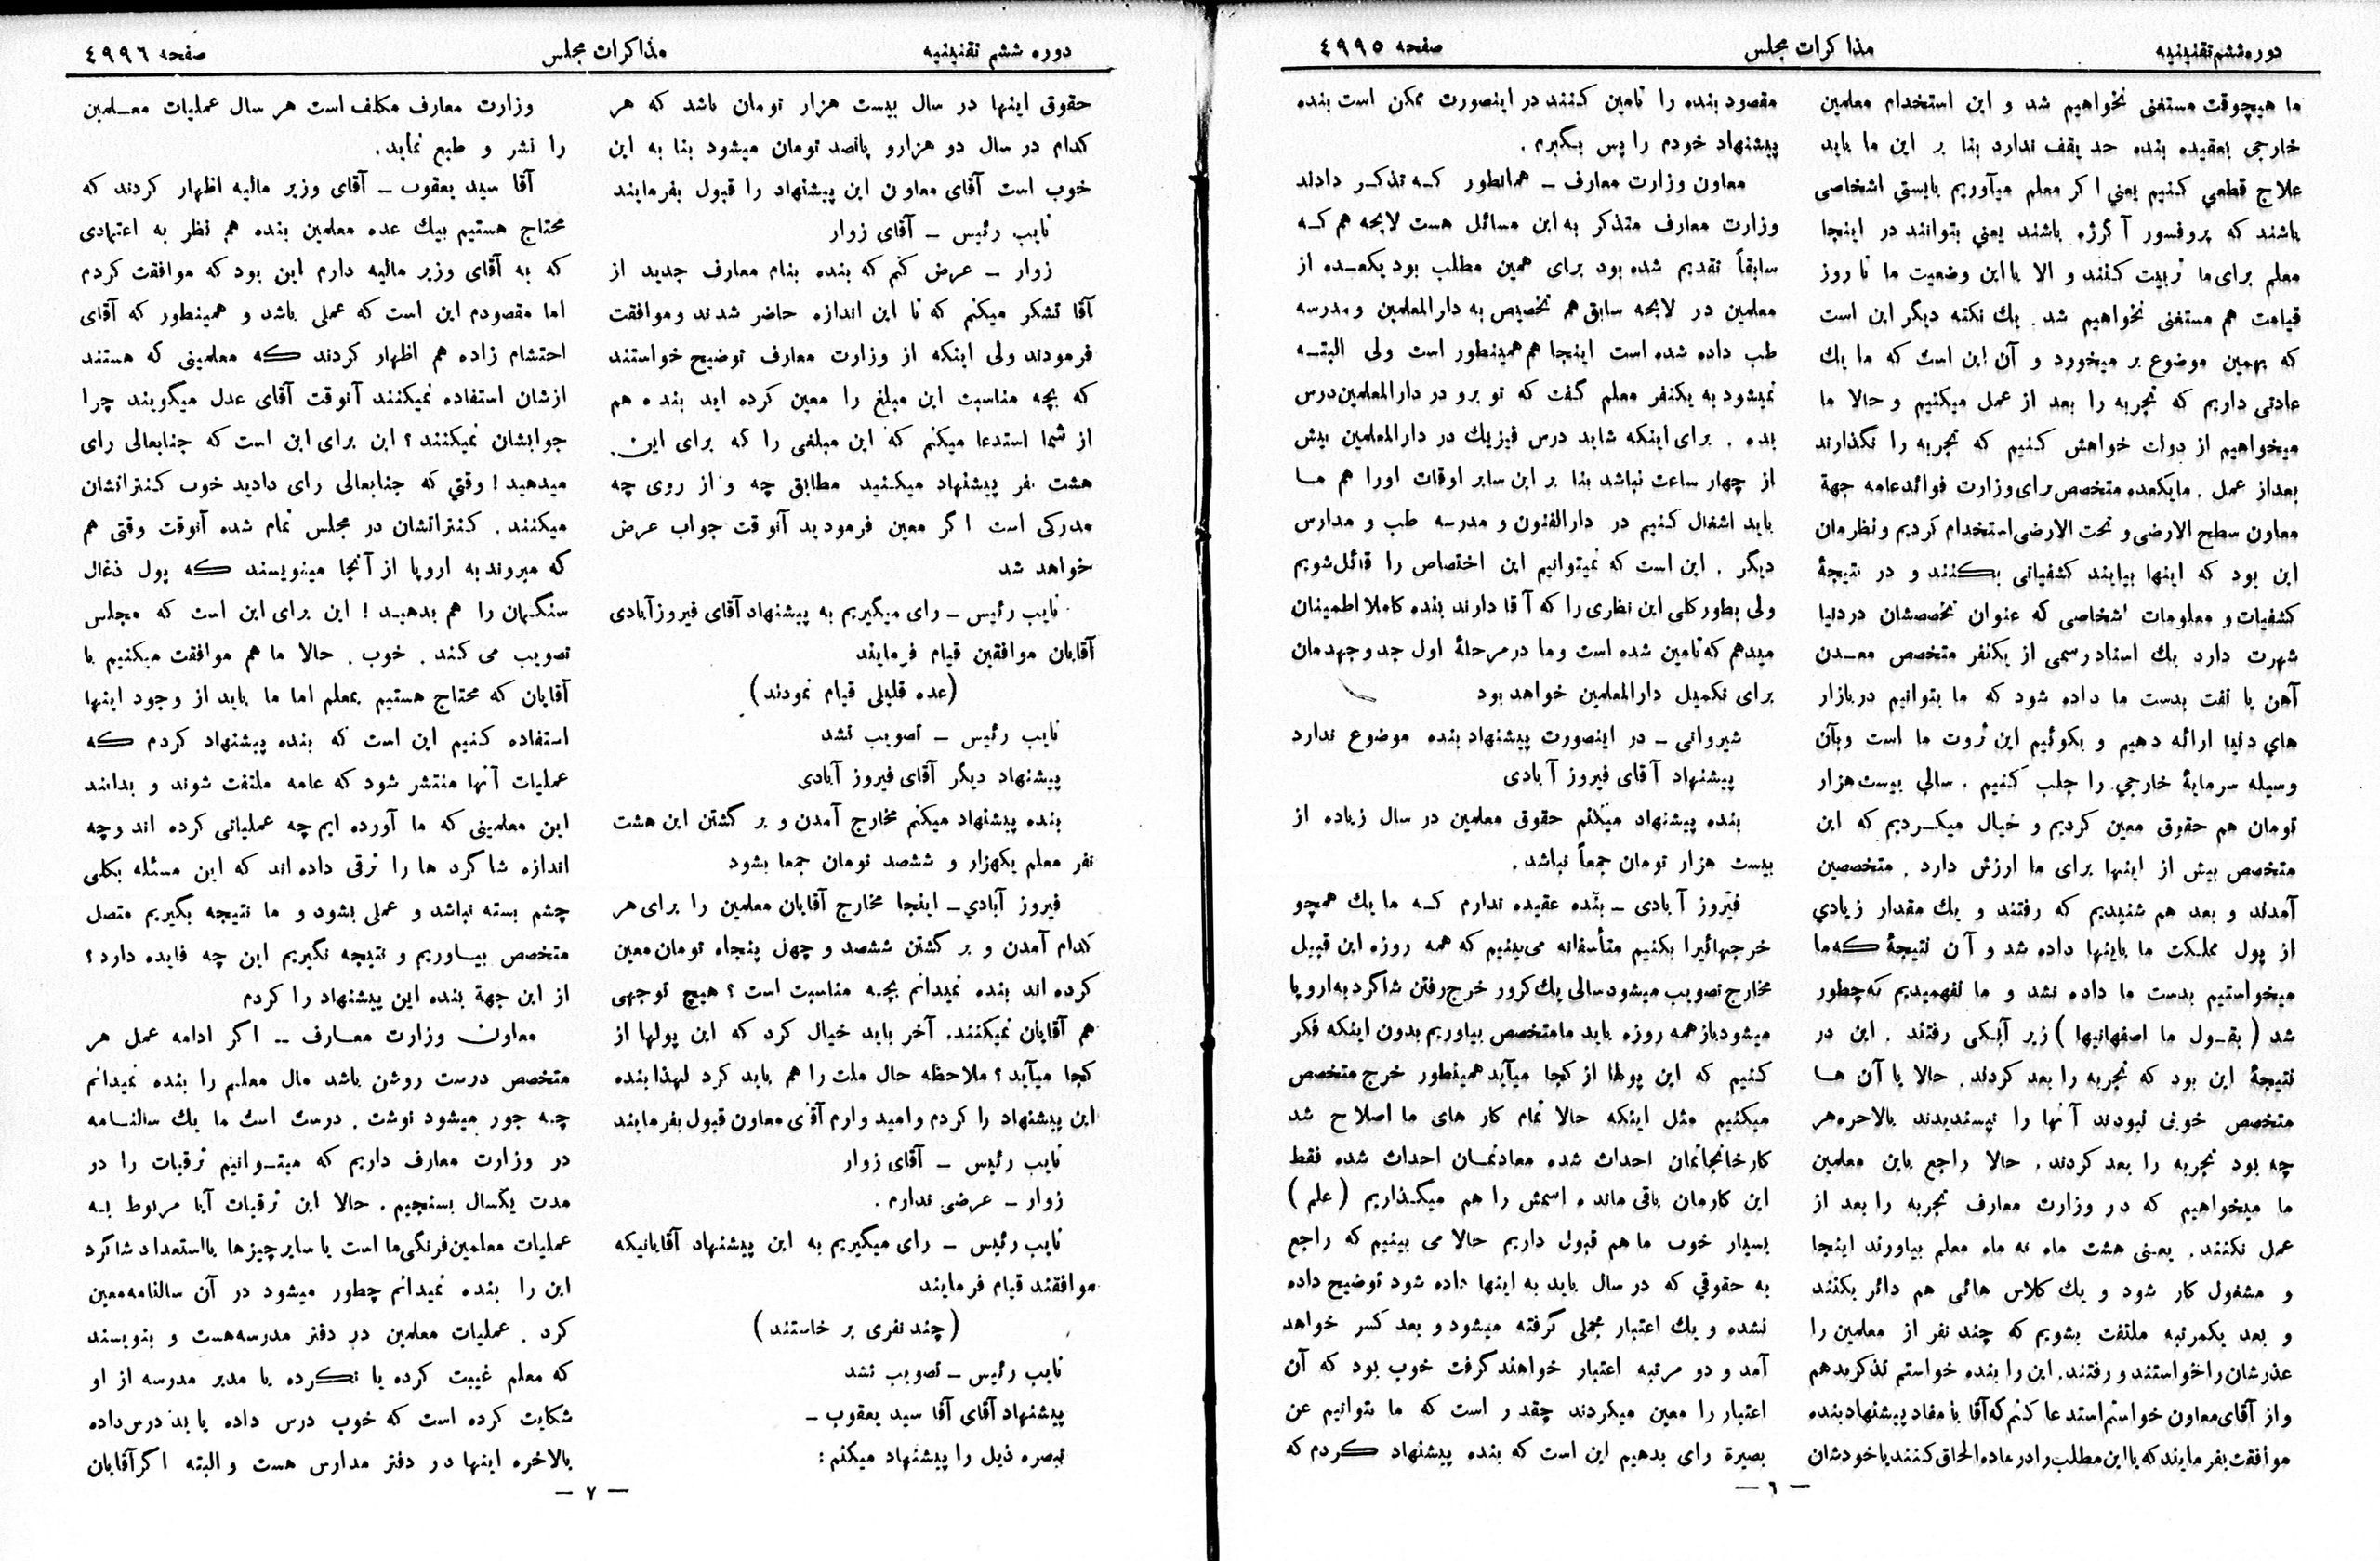 دوره ششم تقنینیه
مذاکرات مجلس
صفحه ٤٩٩٥
ما هیچوقت مستغنی نخواهیم شد و این استخدام معلمین
خارجی بعقیده بنده حد یقف ندارد بنا بر این ما باید
علاج قطعي کنیم یعني اکر معلم میآوریم بایستی اشخاصی
باشند که پروفسور آگرژه باشند یعني بتوانند در اینجا
معلم برای ما تربیت کنند و الا با این وضعیت ما تا روز
قیامت هم مستغنی نخواهیم شد. یك نکته دیگر این است
که بهمین موضوع بر میخورد و آن این است که ما یك
عادتی داریم که تجربه را بعد از عمل میکنیم و حالا ما
میخواهیم از دولت خواهش کنیم که تجربه را نگذارند
بعداز عمل . مایکعده متخصص برای وزارت فوائدعامه جهة
معاون سطح الارضی و تحت الارضی استخدام کردیم و نظرمان
این بود که اینها بیایند کشفیاتی بکنند و در نتیجهٔ
کشفیات و معلومات اشخاصی که عنوان تخصصشان در دنیا
شهرت دارد یك اسناد رسمی از یکنفر متخصص معـدن
آهن یا نفت بدست ما داده شود که ما بتوانیم در بازار
هاي دنیا ارائه دهیم و بکوئیم این ثروت ما است وبآن
وسیله سرمایهٔ خارجي را جلب کنیم . سالي بیست هزار
تومان هم حقوق معین کردیم و خیال میکـردیم که این
متخصص بیش از اینها برای ما ارزش دارد . متخصصین
آمدند و بعد هم شنیدیم که رفتند و یك مقدار زیادي
از پول مملکت ما باینها داده شد و آن نتیجهٔ که ما
میخواستیم بدست ما داده نشد و ما نفهمیدیم که چطور
شد ( بقـول ما اصفهانیها ) زیر آبـکی رفتند . این در
نتیجهٔ این بود که تجربه را بعد کردند. حالا یا آن هـا
متخصص خوبی نبودند آنها را نپسندیدند بالاخره هر
چه بود تجربه را بعد کردند. حالا راجع باین معلمین
ما میخواهیم که در وزارت معارف تجربه را بعد از
عمل نکنند. یعنی هشت ماه نه ماه معلم بیاورند اینجا
و مشغول کار شود و یك کلاس هائی هم دائر بکنند
و بعد یکمرتبه ملتفت بشویم که چند نفر از معلمین را
عذرشان را خواستند و رفتند. این را بنده خواستم تذکر بدهم
و از آقای معاون خواستم استدعا کنم که آقا با مفاد پیشنهاد بنده
موافقت بفرمایند که یا این مطلب را در ماده الحاق کنند یا خودشان
مقصود بنده را تامین کنند در اینصورت ممکن است بنده
پیشنهاد خودم را پس بگیرم .
معاون وزارت معارف ـ همانطور کـه تذکـر دادند
وزارت معارف متذکر به این مسائل هست لایحه هم کـه
سابقاً تقدیم شده بود برای همین مطلب بود یکعـده از
معلمین در لایحه سابق هم تخصیص به دارالمعلمین و مدرسه
طب داده شده است اینجا هم همینطور است ولی البتـه
نمیشود به یکنفر معلم گفت که تو برو در دارالمعلمین درس
بده . برای اینکه شاید درس فیزیك در دارالمعلمین بیش
از چهار ساعت نباشد بنا بر این سایر اوقات اورا هم مـا
باید اشغال کنیم در دارالفنون و مدرسه طب و مدارس
دیگر . این است که نمیتوانیم این اختصاص را قائل شویم
ولی بطور کلی این نظری را که آقا دارند بنده کاملا اطمینان
میدهم که تامین شده است و ما در مرحلهٔ اول جد و جهدمان
برای تکمیل دارالمعلمین خواهد بود
شیروانی ـ در اینصورت پیشنهاد بنده موضوع ندارد
پیشنهاد آقای فیروز آبادی
بنده پیشنهاد میکنم حقوق معلمین در سال زیاده از
بیست هزار تومان جمعاً نباشد.
فیروز آبادی ـ بنده عقیده ندارم کـه ما یك همچو
خرجهائیرا بکنیم متأسفانه می‌بینیم که همه روزه این قبیل
مخارج تصویب میشود سالی یك کرور خرج رفتن شاگرد به اروپا
میشود باز همه روزه باید ما متخصص بیاوریم بدون اینکه فکر
کنیم که این پولها از کجا میآید همینطور خرج متخصص
میکنیم مثل اینکه حالا تمام کار های ما اصلاح شد
کارخانجاتمان احداث شده معادنمـان احداث شده فقط
این کارمان باقی مانده اسمش را هم میگـذاریم ( علم )
بسیار خوب ما هم قبول داریم حالا می بینیم که راجع
به حقوقي که در سال باید به اینها داده شود توضیح داده
نشده و یك اعتبار مجملی گرفته میشود و بعد کسر خواهد
آمد و دو مرتبه اعتبار خواهند گرفت خوب بود که آن
اعتبار را معین میکردند چقدر است که ما بتوانیم عن
بصیرة رای بدهیم این است که بنده پیشنهاد کردم که
— ٦ —
دوره ششم تقنینیه
مذاکرات مجلس
صفحه ٤٩٩٦
حقوق اینها در سال بیست هزار تومان باشد که هر
کدام در سال دو هزارو پانصد تومان میشود بنا به این
خوب است آقای معاون این پیشنهاد را قبول بفرمایند
نایب رئیس ـ آقای زوار
زوار ـ عرض کنم که بنده بنام معارف جدید از
آقا تشکر میکنم که تا این اندازه حاضر شدند و موافقت
فرمودند ولی اینکه از وزارت معارف توضیح خواستند
که بچه مناسبت این مبلغ را معین کرده اید بنده هم
از شما استدعا میکنم که این مبلغی را که برای این
هشت نفر پیشنهاد میکنید مطابق چه و از روی چه
مدرکی است اگر معین فرمودید آنوقت جواب عرض
خواهد شد
نایب رئیس ـ رای میگیریم به پیشنهاد آقای فیروزآبادی
آقایان موافقین قیام فرمایند
(عده قلیلی قیام نمودند)
نایب رئیس ـ تصویب نشد
پیشنهاد دیگر آقای فیروز آبادی
بنده پیشنهاد میکنم مخارج آمدن و بر گشتن این هشت
نفر معلم یکهزار و ششصد تومان جمعا بشود
فیروز آبادي ـ اینجا مخارج آقایان معلمین را برای هر
کدام آمدن و بر گشتن ششصد و چهل پنجاه تومان معین
کرده اند بنده نمیدانم بچـه مناسبت است ؟ هیچ توجهی
هم آقایان نمیکنند. آخر باید خیال کرد که این پولها از
کجا میآید ؟ ملاحظه حال ملت را هم باید کرد لهذا بنده
این پیشنهاد را کردم و امید وارم آقای معاون قبول بفرمایند
نایب رئیس ـ آقای زوار
زوار ـ عرضی ندارم .
نایب رئیس ـ رای میگیریم به این پیشنهاد آقایانیکه
موافقند قیام فرمایند
(چند نفری بر خاستند)
نایب رئیس ـ تصویب نشد
پیشنهاد آقای آقا سید یعقوب ـ
تبصره ذیل را پیشنهاد میکنم :
وزارت معارف مکلف است هر سال عملیات معـلمین
را نشر و طبع نماید.
آقا سید یعقوب ـ آقای وزیر مالیه اظهار کردند که
محتاج هستیم بیك عده معلمین بنده هم نظر به اعتمادی
که به آقای وزیر مالیه دارم این بود که موافقت کردم
اما مقصودم این است که عملی باشد و همینطور که آقای
احتشام زاده هم اظهار کردند که معلمینی که هستند
ازشان استفاده نمیکنند آنوقت آقای عدل میگویند چرا
جوابشان نمیکنند ؟ این برای این است که جنابعالی رای
میدهید ! وقتي که جنابعالی رای دادید خوب کنتراتشان
میکنند . کنتراتشان در مجلس تمام شده آنوقت وقتی هم
که میروند به اروپا از آنجا مینویسند که پول ذغال
سنگمان را هم بدهیـد ! این برای این است که مجلس
تصویب می کند . خوب . حالا ما هم موافقت میکنیم با
آقایان که محتاج هستیم بمعلم اما ما باید از وجود اینها
استفاده کنیم این است که بنده پیشنهاد کردم که
عملیات آنها منتشر شود که عامه ملتفت شوند و بدانند
این معلمینی که ما آورده ایم چه عملیاتی کرده اند و چه
اندازه شاگرد ها را ترقی داده اند که این مسئله بکلی
چشم بسته نباشد و عملی بشود و ما نتیجه بگیریم متصل
متخصص بیـاوریم و نتیجه نگیریم این چه فایده دارد ؟
از این جهة بنده این پیشنهاد را کردم
معاون وزارت معـارف ــ اکر ادامه عمل هر
متخصص درست روشن باشد مال معلم را بنده نمیدانم
چـه جور میشود نوشت . درست است ما یك سالنـامه
در وزارت معارف داریم که میتـوانیم ترقیات را در
مدت یکسال بسنجیم . حالا این ترقیات آیا مربوط بـه
عملیات معلمین فرنگی ما است یا سایر چیزها یا استعداد شاگرد
این را بنده نمیدانم چطور میشود در آن سالنامه معین
کرد . عملیات معلمین در دفتر مدرسه هست و بنویسند
که معلم غیبت کرده یا نکرده یا مدیر مدرسه از او
شکایت کرده است که خوب درس داده یا بد درس داده
بالاخره اینها در دفتر مدارس هست و البته اگر آقایان
— ٧ —